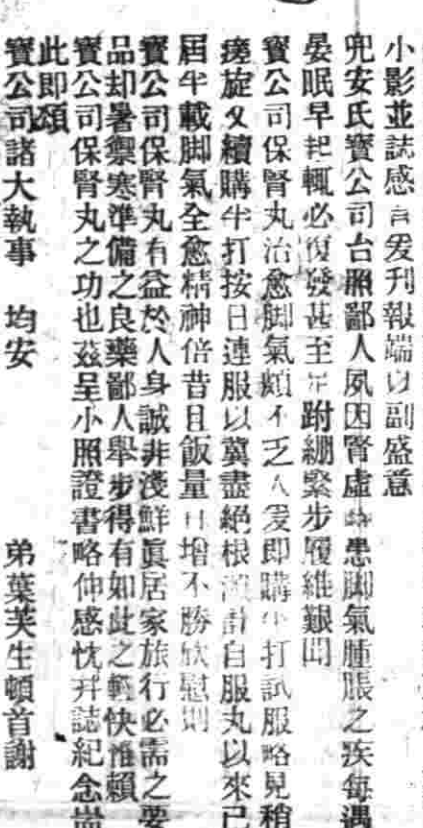 小影並誌感言爰刊報端以副盛意
兜安氏寶公司台照鄙人夙因腎虛患脚氣腫脹之疾每遇
晏眠早起輒必復發甚至足跗綳緊步履維艱聞
寶公司保腎丸治愈脚氣頗不乏人爰卽購半打試服略見稍
瘥旋又續購半打按日連服以冀盡絕根計自服丸以來已
屆半載脚氣全愈精神倍昔且飯量日增不勝欣慰則
寶公司保腎丸有益於人身誠非淺鮮眞居家旅行必需之要
品却暑禦寒準備之良藥鄙人舉步得有如此之輕快惟賴
寶公司保腎丸之功也茲呈小照證書略伸感忱幷誌紀念耑
此卽頌
寶公司諸大執事 均安 弟葉芙生頓首謝